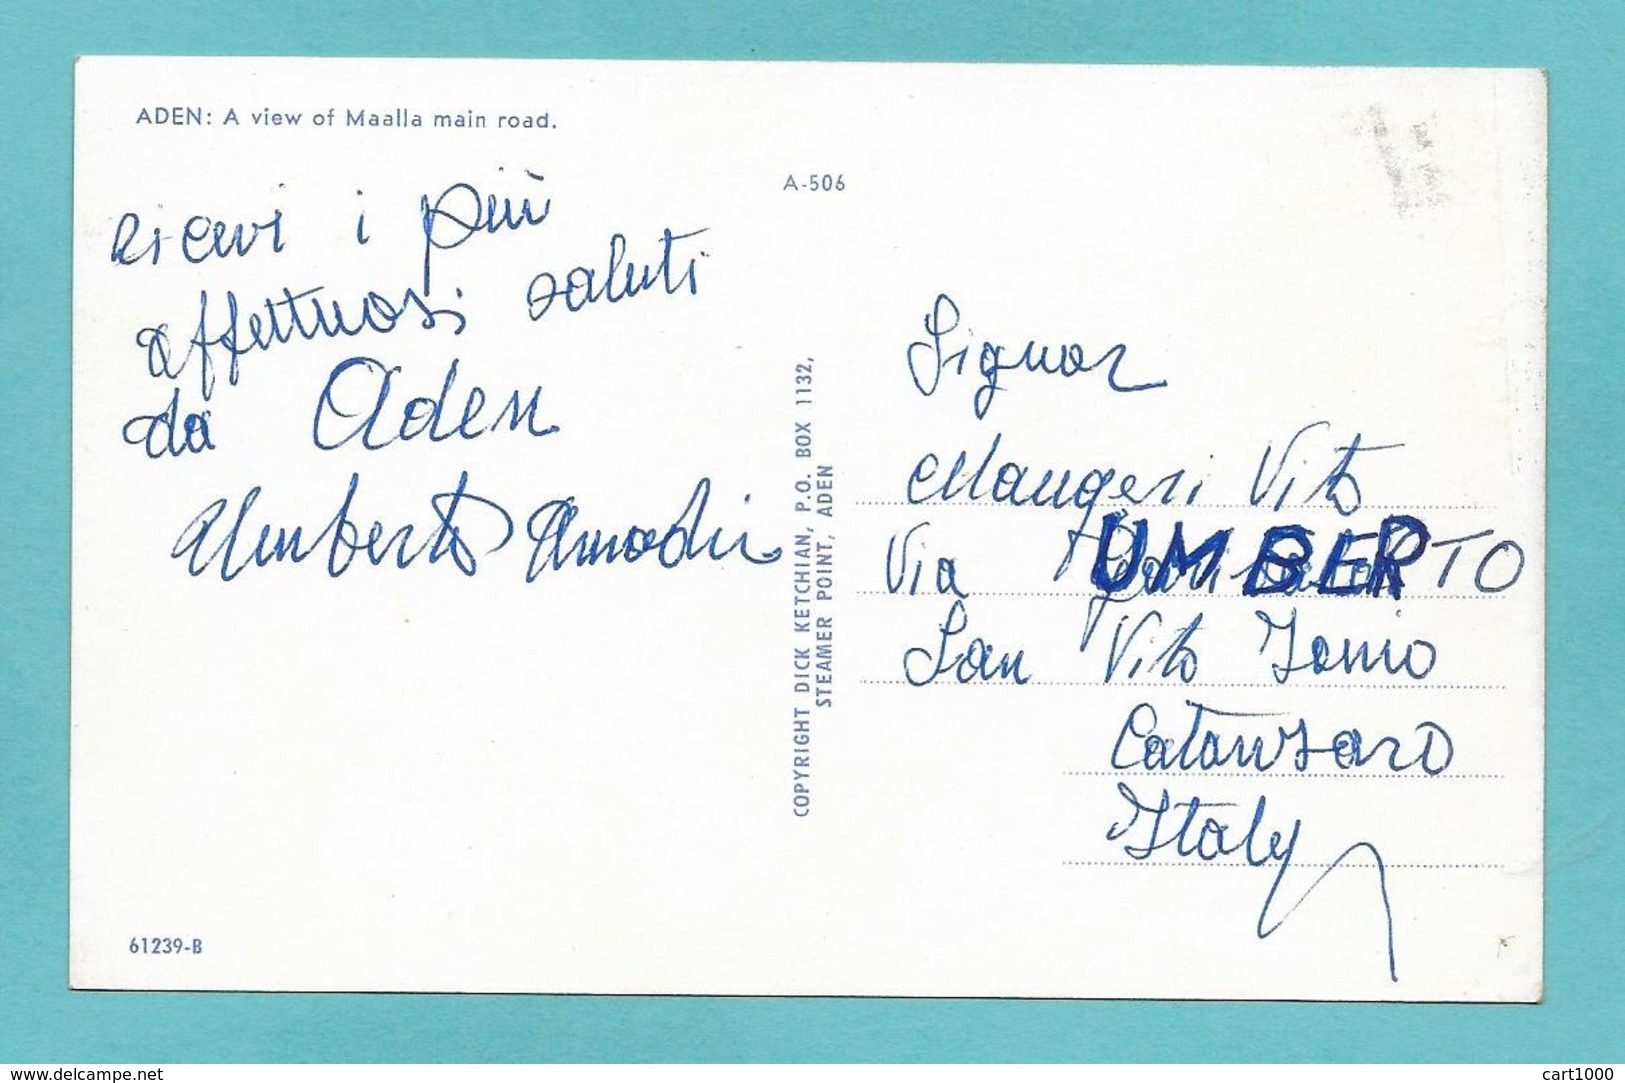 ADEN: A view of Maalla main road.
A-506
ricevi i più
affettuosi saluti
da Aden
Umberto Amodii
COPYRIGHT DICK KETCHIAN, P.O. BOX 1132,
STEAMER POINT, ADEN
Signor
Mangeri Vito
Via UMBERTO
San Vito Jonio
Catanzaro
Italy
61239-B
www.delcampe.net
cart1000